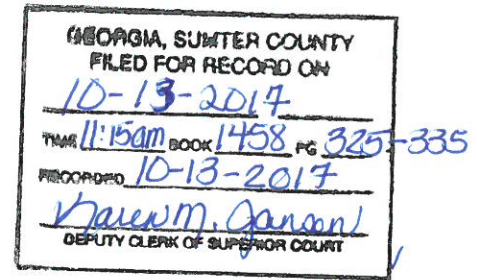 GEORGIA, SUMTER COUNTY
FILED FOR RECORD ON
10-13-2017
TIME 11:15am BOOK 1458 PG 325-335
RECORDED 10-13-2017
Karen M.
DEPUTY CLERK OF SUPERIOR COURT